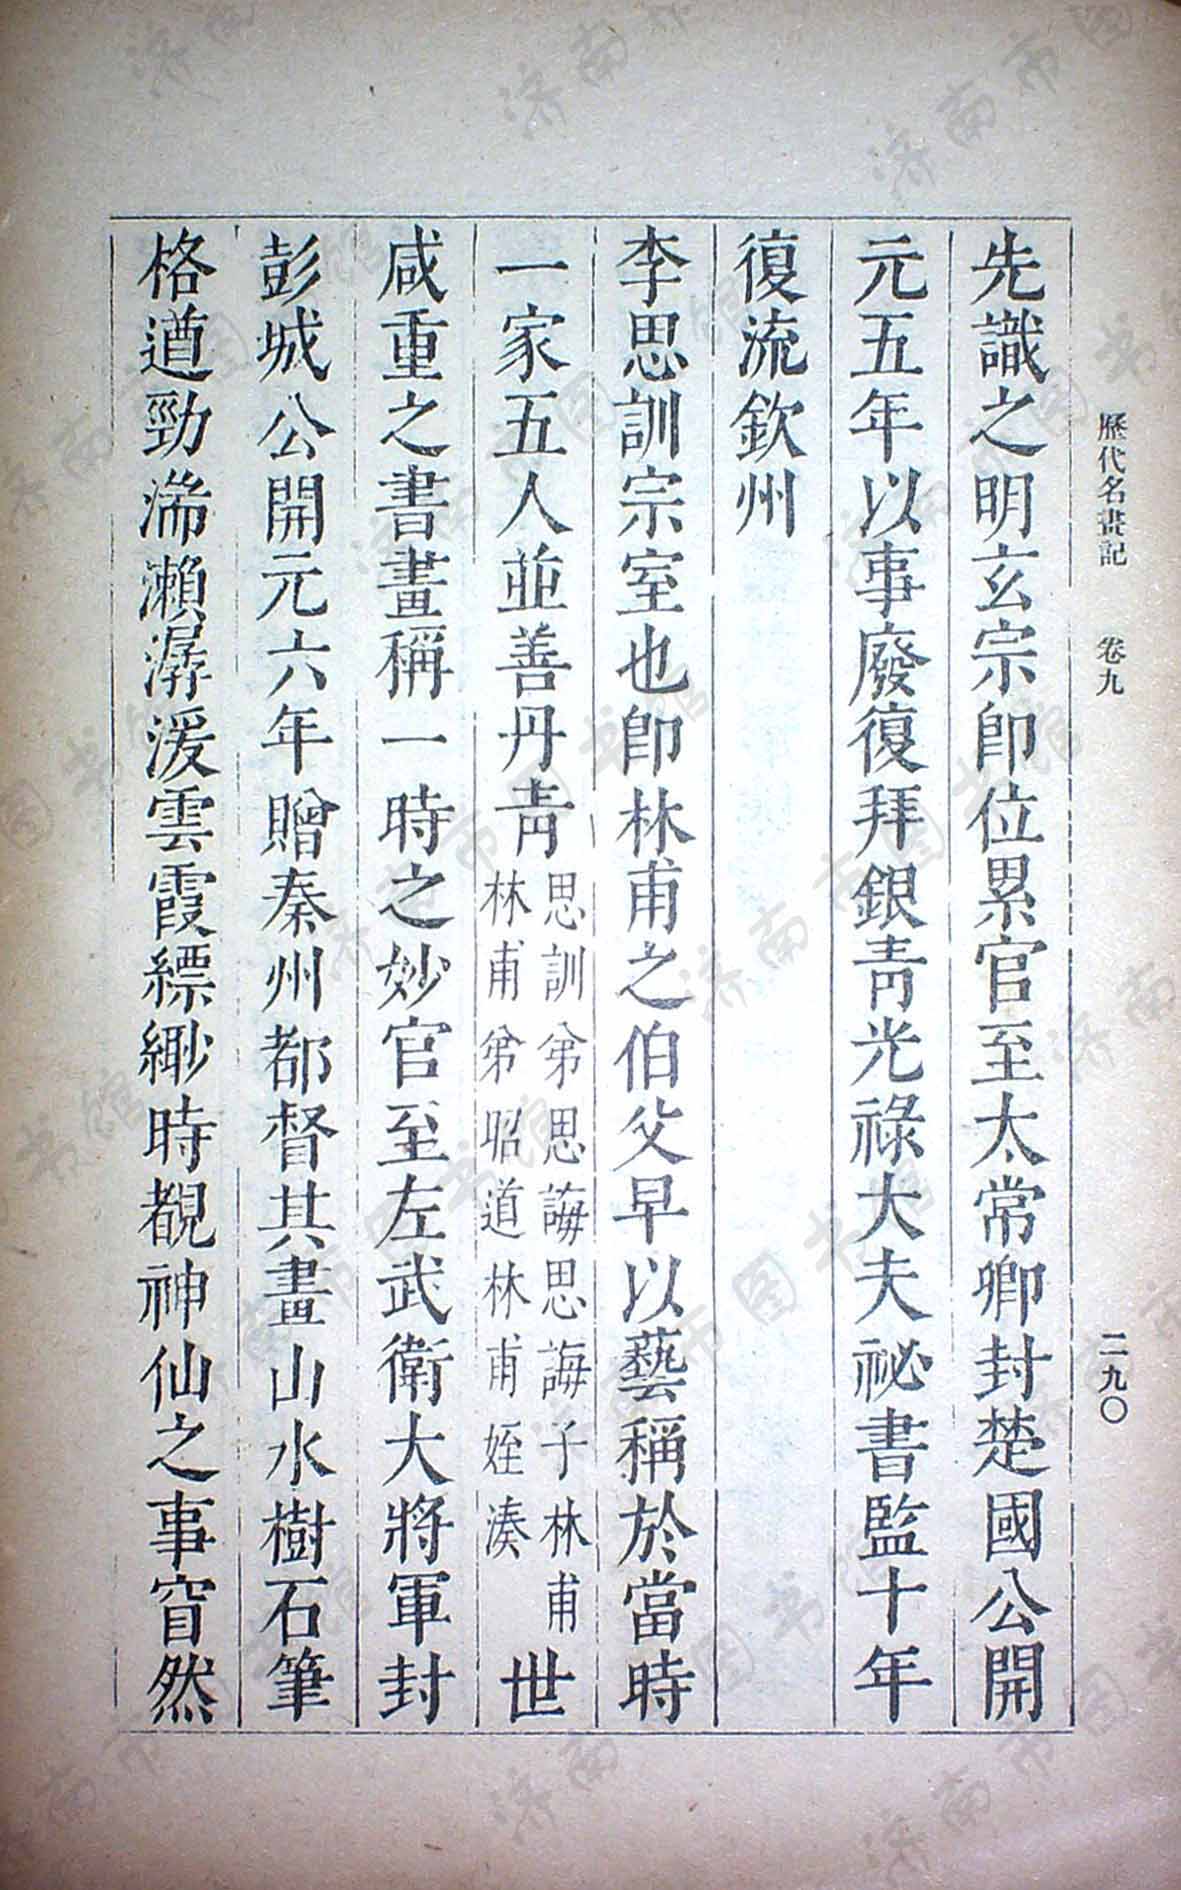 歷代名畫記 卷九 二九〇
先識之明玄宗卽位累官至太常卿封楚國公開
元五年以事廢復拜銀青光祿大夫祕書監十年
復流欽州
李思訓宗室也卽林甫之伯父早以藝稱於當時
一家五人並善丹青思訓弟思誨思誨子林甫林甫弟昭道林甫姪湊世
咸重之書畫稱一時之妙官至左武衛大將軍封
彭城公開元六年贈秦州都督其畫山水樹石筆
格遒勁湍瀨潺湲雲霞縹緲時覩神仙之事窅然
济南市图书馆